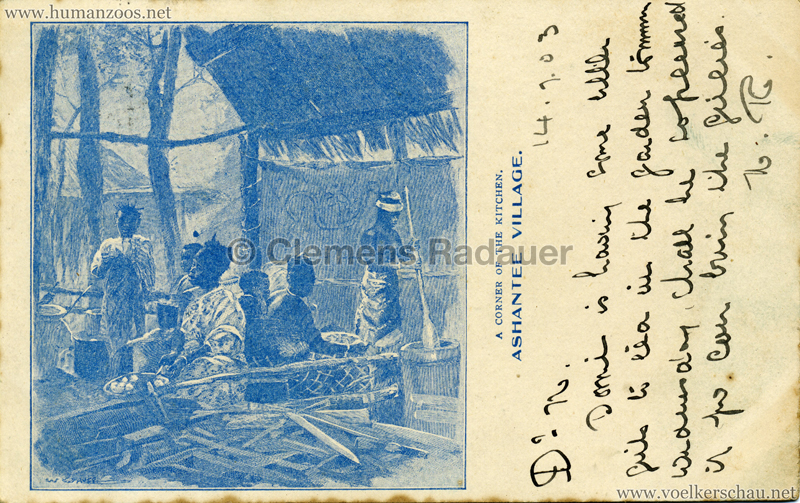 www.humanzoos.net
A CORNER OF THE KITCHEN.
ASHANTEE VILLAGE.
© Clemens Radauer
14.9.03
Dr. N.
is having some little
girls to tea in the garden
Wednesday, shall be so pleased
if you can bring the girlies.
N. R.
www.voelkerschau.net